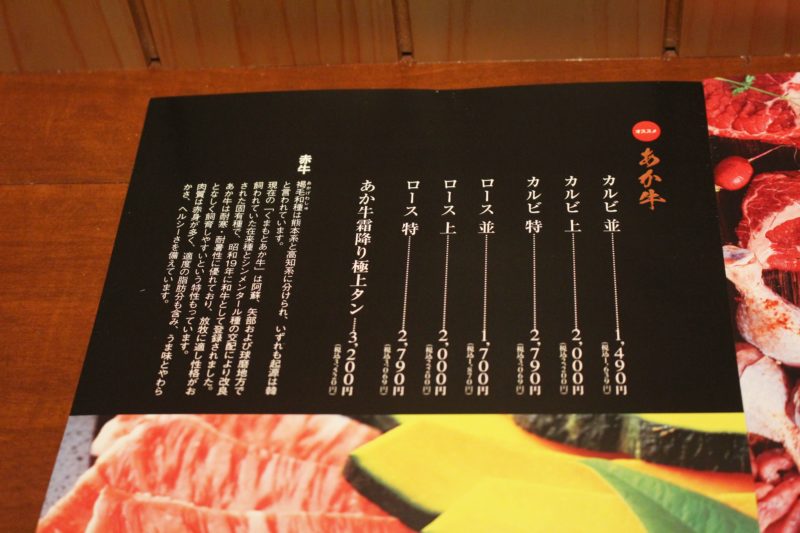 オススメ
あか牛
カルビ 並 1,490円
(税込1,639円)
カルビ 上 2,000円
(税込2,200円)
カルビ 特 2,790円
(税込3,069円)
ロース 並 1,700円
(税込1,870円)
ロース 上 2,000円
(税込2,200円)
ロース 特 2,790円
(税込3,069円)
あか牛霜降り極上タン 3,200円
(税込3,520円)
赤牛
褐毛和種は熊本系と高知系に分けられ、いずれも起源は韓
と言われています。
現在の「くまもとあか牛」は阿蘇、矢部および球磨地方で
飼われていた在来種とシンメンタール種の交配により改良
された固有種で、昭和19年に和牛として登録されました。
あか牛は耐寒・耐暑性に優れており、放牧に適し性格がお
となしく飼育しやすいという特性もっています。
肉質は赤身が多く、適度の脂肪分も含み、うま味とやわら
かさ、ヘルシーさを備えています。